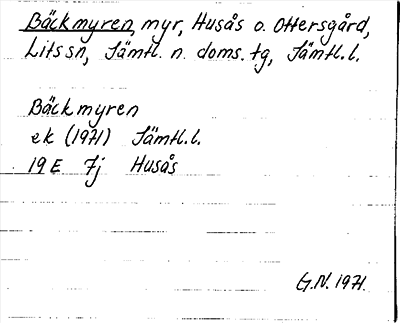 Bäckmyren, myr, Husås o. Ottersgård,
Lits sn, Jämtl. n. doms. tg, Jämtl. l.
Bäckmyren
ek (1971) Jämtl. l.
19 E 7j Husås
G.N. 1971.